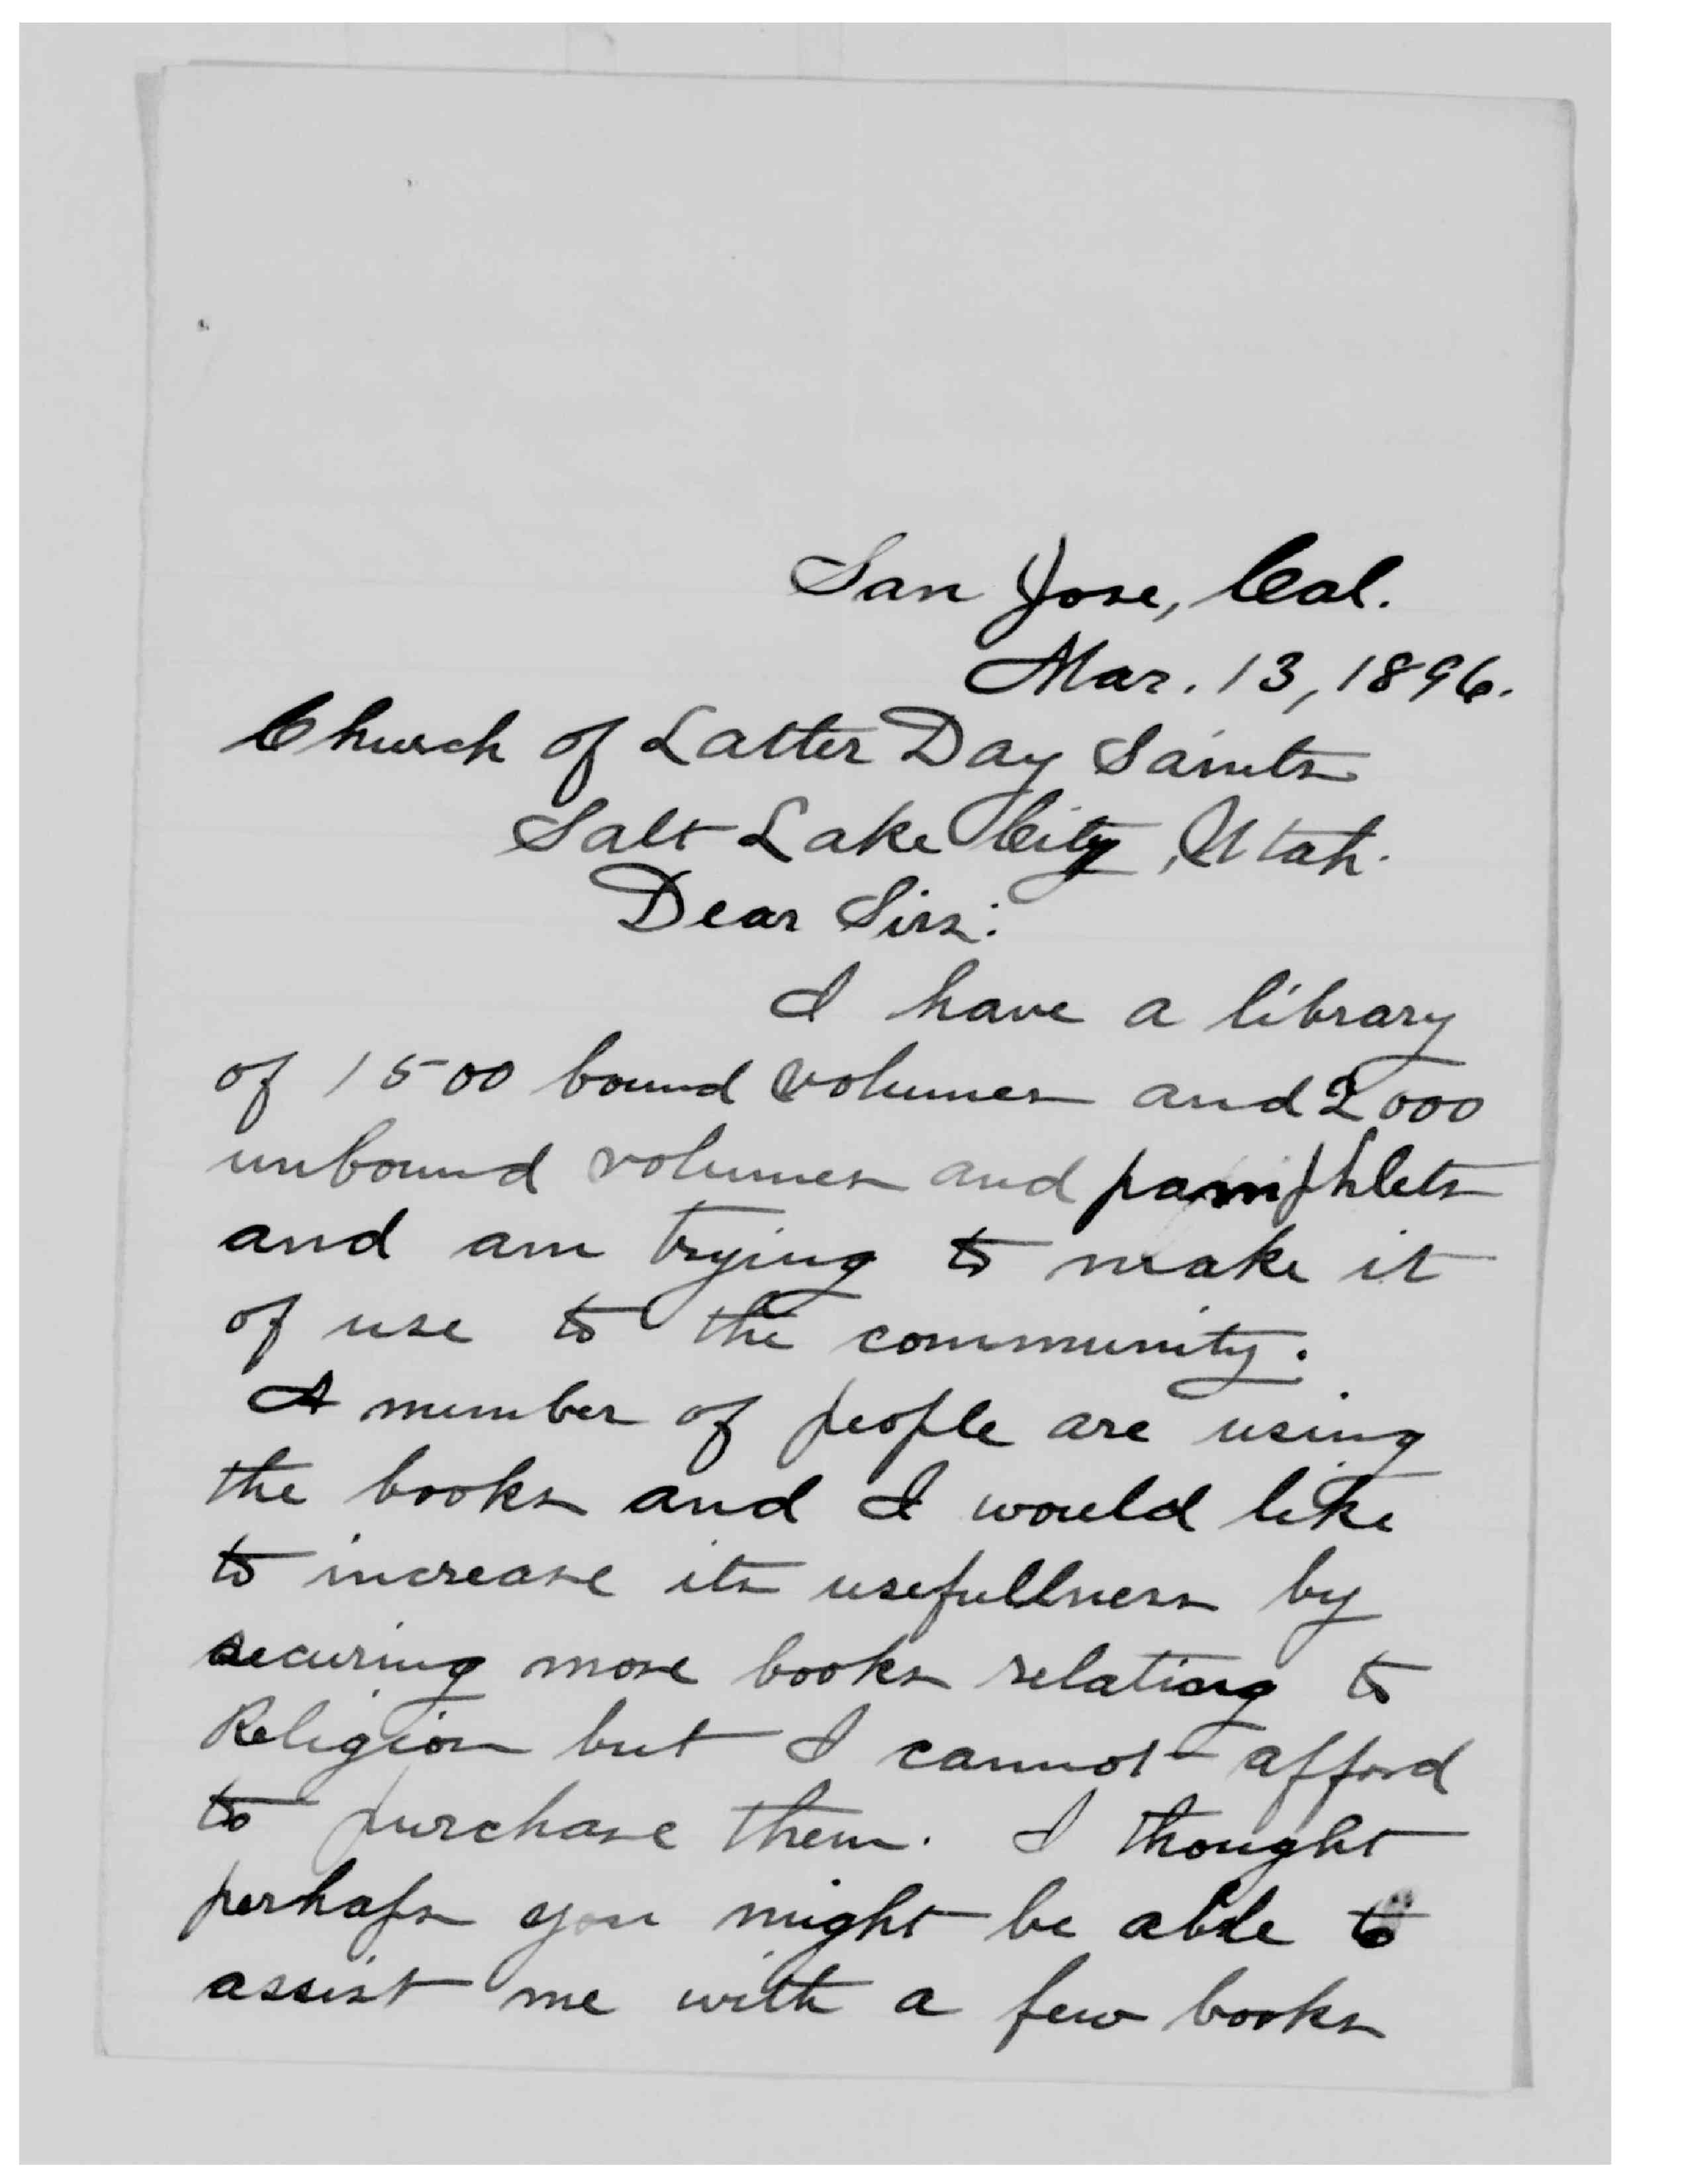 San Jose, Cal.
Mar. 13, 1896.
Church of Latter Day Saints
Salt Lake City, Utah.
Dear Sirs:
I have a library
of 1500 bound volumes and 2000
unbound volumes and pamphlets
and am trying to make it
of use to the community.
A number of people are using
the books and I would like
to increase its usefullness by
securing more books relating to
Religion but I cannot afford
to purchase them. I thought
perhaps you might be able to
assist me with a few books